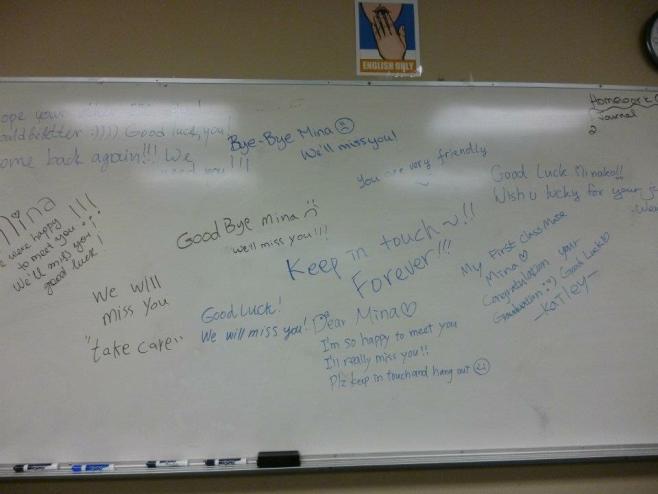 ENGLISH ONLY
Homework
Journal
2
ope your
Good luck, you!
ome back again!!! We
Bye-Bye Mina
We'll miss you!
You are very friendly
Good Luck Minako!!
Wish u lucky for your
Mina !!!
were happy
to meet you
We'll miss you
good luck!
Good Bye mina
we'll miss you!!!
Keep in touch~!!
Forever!!!
My First Class Mate
Mina♡
Congratulation your
Graduation :') Good Luck♡
—KAILEY—
We will
miss You
"take care"
Good Luck!
We will miss you!
Dear Mina♡
I'm so happy to meet you
I'll really miss you!!
Plz keep in touch and hang out